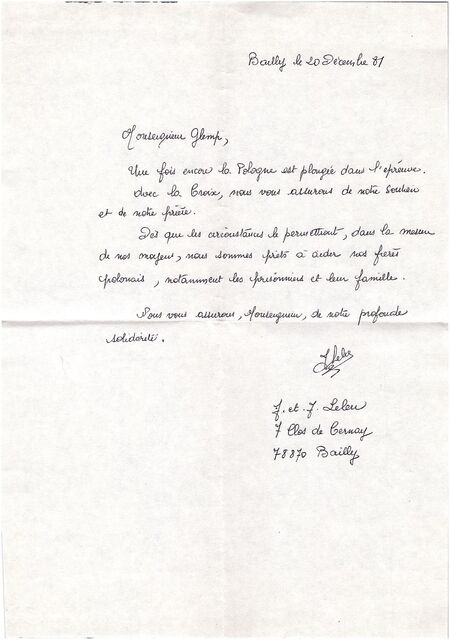 Bailly le 20 Décembre 81
Monseigneur Glemp,
Une fois encore la Pologne est plongée dans l'épreuve.
Avec la Croix, nous vous assurons de notre soutien
et de notre prière.
Dès que les circonstances le permettront, dans la mesure
de nos moyens, nous sommes prêts à aider nos frères
polonais, notamment les prisonniers et leur famille.
Nous vous assurons, Monseigneur, de notre profonde
solidarité.
J. et J. Leleu
7 Clos de Cernay
78870 Bailly